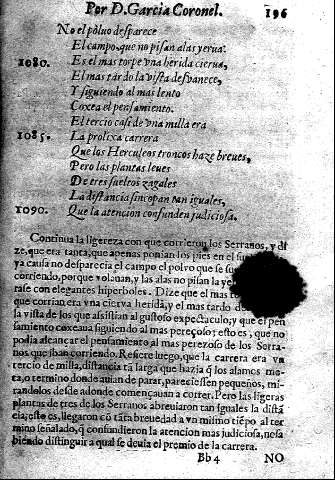 Por D. Garcia Coronel. 196
No el poluo desparece
El campo, que no pisan alas yerua.
1080. Es el mas torpe vna herida cierua,
El mas tardo la vista desvanece,
Y siguiendo al mas lento
Coxea el pensamiento.
El tercio casi de vna milla era
1085. La prolixa carrera
Que los Herculeos troncos haze breues,
Pero las plantas leues
De tres sueltos zagales
La distancia sincopan tan iguales,
1090. Que la atencion confunden judiciosa.
Continua la ligereza con que corrieron los Serranos, y di
ze, que era tanta, que apenas ponian los pies en el
ya causa no desparecia el campo el polvo que se
corriendo, porque volauan, y las alas no pisan la
tase con elegantes hiperboles. Dize que el mas
que corrian era vna cierva herida, y el mas tardo de
la vista de los que assistian al gustoso espectaculo, y que el pen
samiento coxeaua siguiendo al mas pereçoso; esto es, que no
podia alcançar el pensamiento al mas perezoso de los Serra-
nos que iban corriendo. Refiere luego, que la carrera era vn
tercio de milla, distancia tã larga que hazia q̃ los alamos me-
ta, o termino donde auian de parar, pareciessen pequeños, mi-
randolos desde adonde començauan a correr. Pero las ligeras
plantas de tres de los Serranos abreuiaron tan iguales la distã
cia; esto es, llegaron cõ tãta breuedad a vn mismo tiẽpo al ter
mino señalado, q̃ confundieron la atencion mas judiciosa, no sa
biendo distinguir a qual se deuia el premio de la carrera.
Bb 4 NO